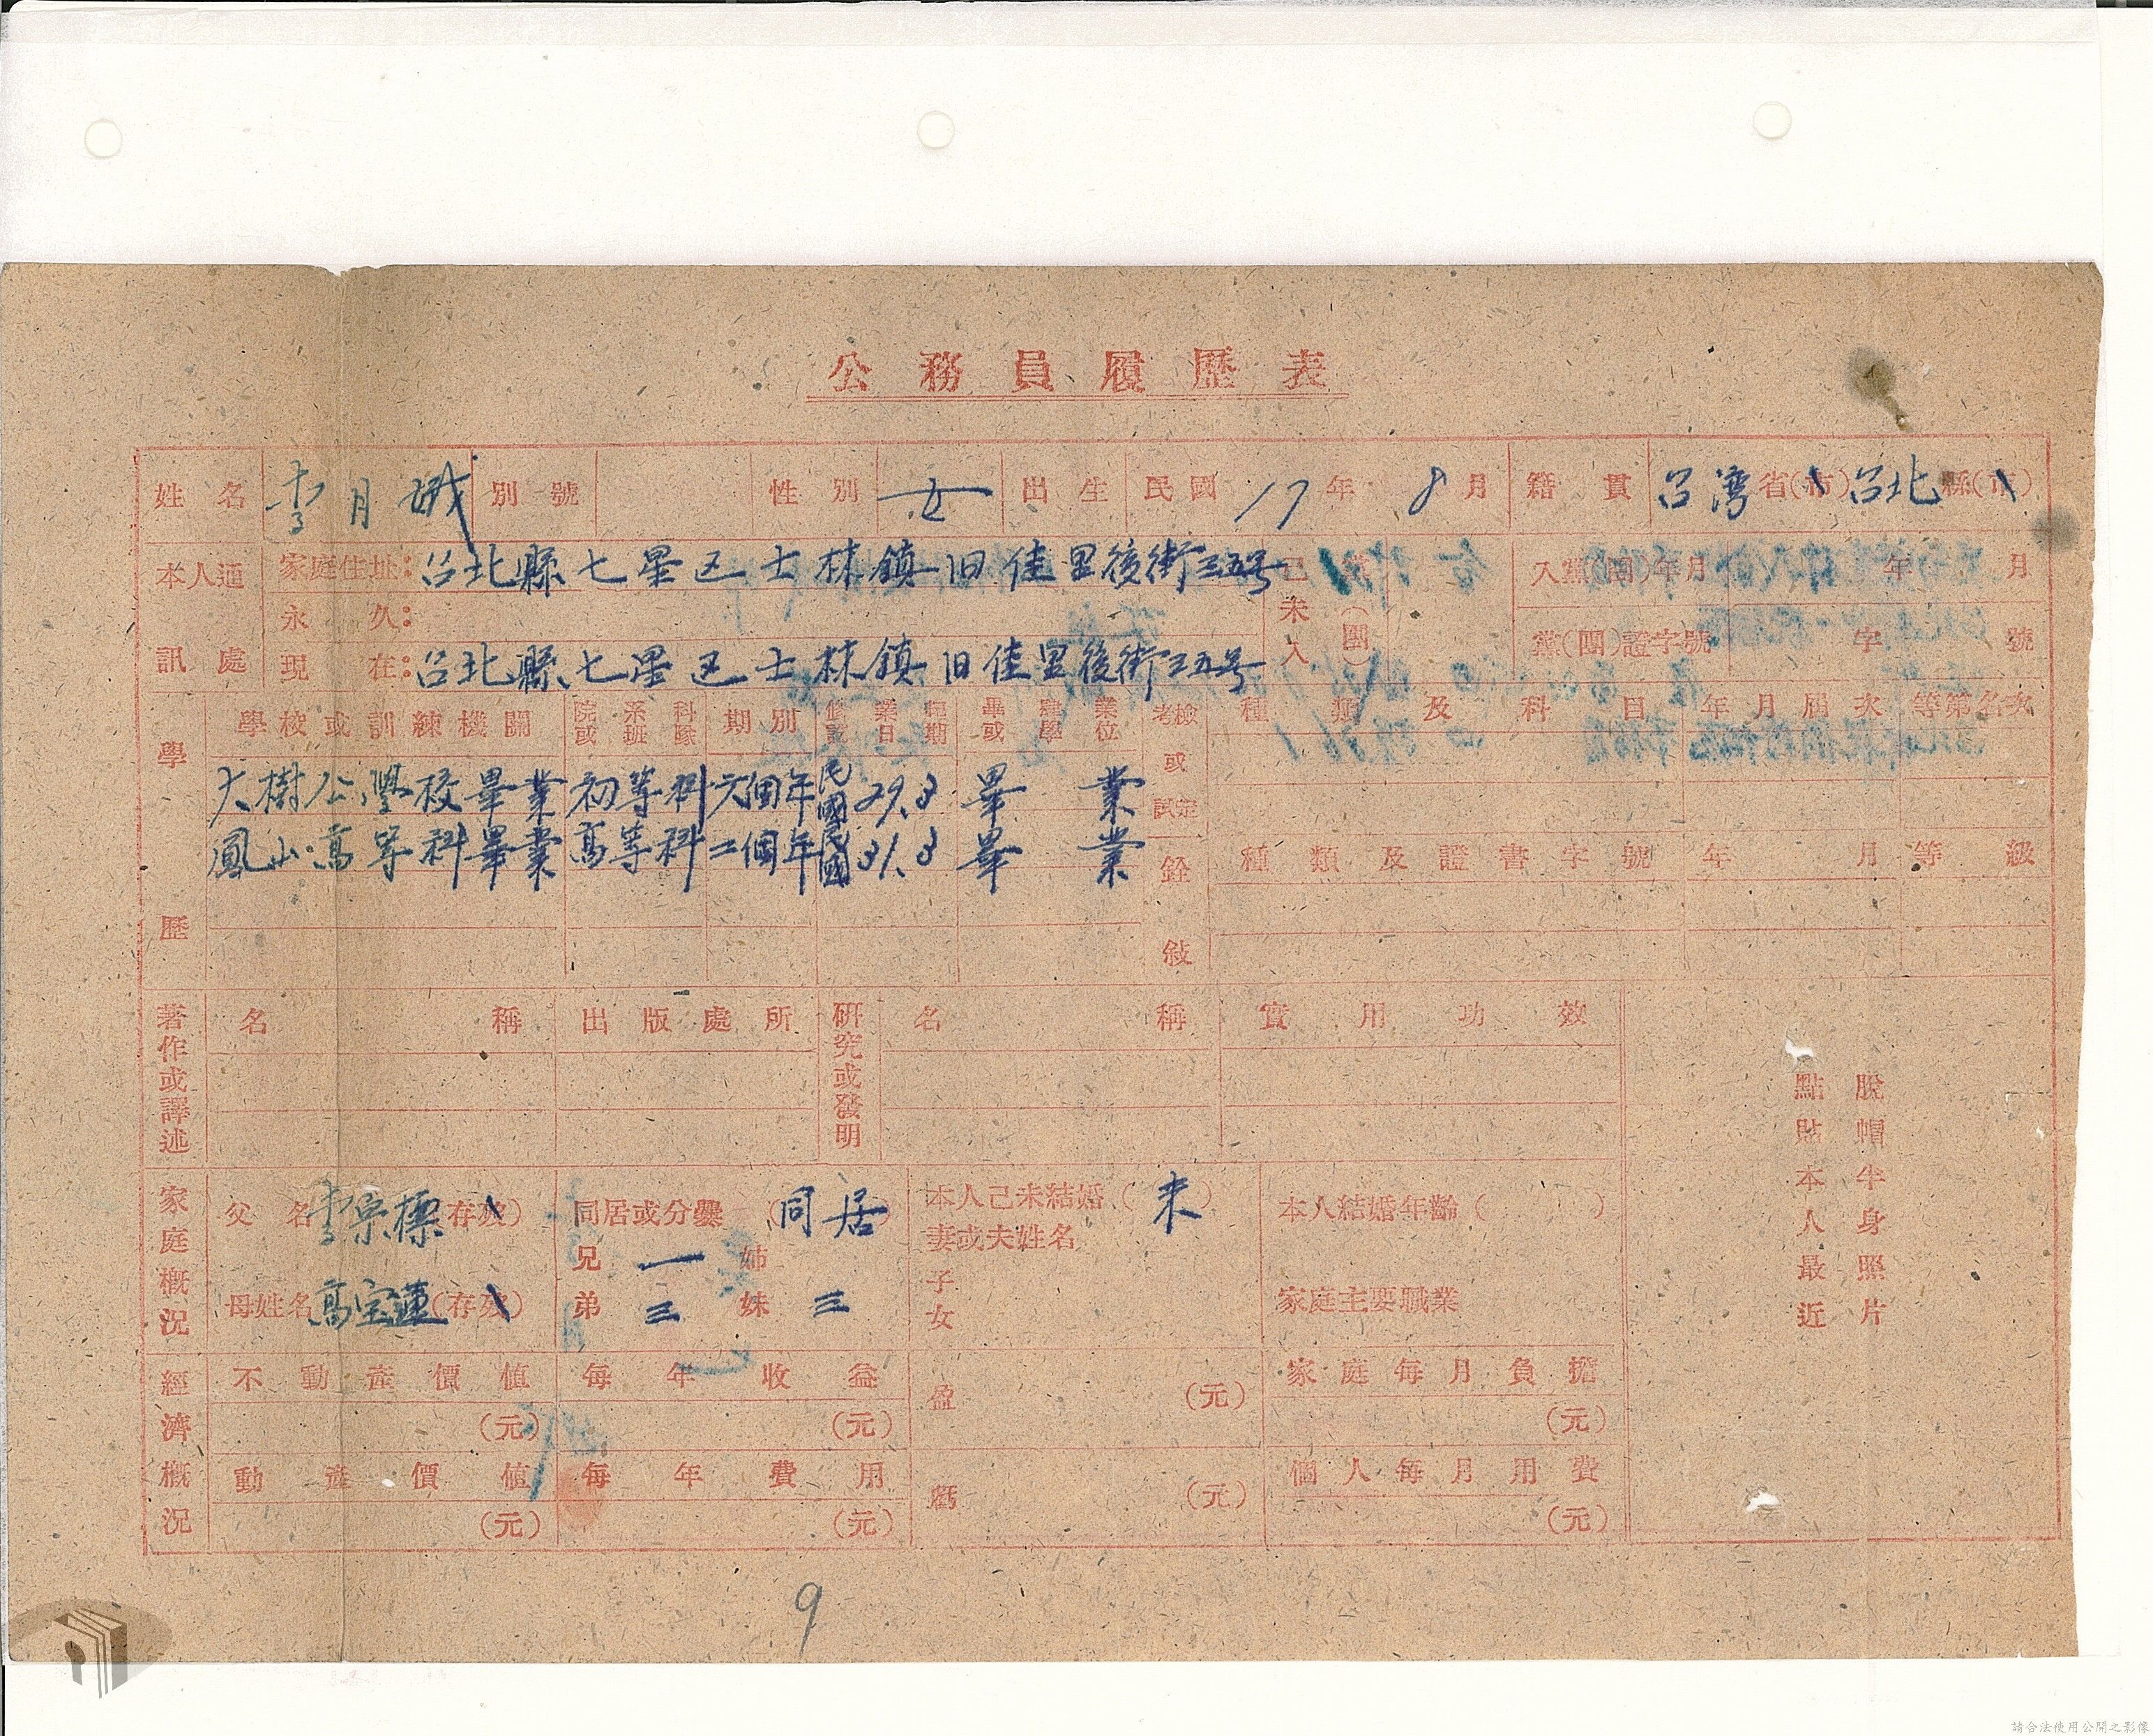 公務員履歷表
姓名 李月娥 別號 性別 女 出生 民國 17年 8月 籍貫 台灣省(市)台北縣(市)
本人通訊處
家庭住址:台北縣七星区士林鎮旧佳里後街三五号
永久:
現在:台北縣七星区士林鎮旧佳里後街三五号
已未入黨(團)
入黨(團)年月 年 月
黨(團)證字號 字 號
學歷
學校或訓練機關 院系科或班隊 期別 畢或學業位
大樹公學校畢業 初等科 六個年 民國29.3 畢業
鳳山高等科畢業 高等科 二個年 民國31.3 畢業
考試或檢定 種類及科目 年月屆次 等第名次
銓敍 種類及證書字號 年月 等級
著作或譯述 名稱 出版處所
研究或發明 名稱 實用功效
脫帽半身照片
點貼本人最近
家庭概況
父名 李 標(存歿) 同居或分爨(同居) 本人已未結婚(未) 本人結婚年齡( )
妻或夫姓名
兄 一 姊
母姓名 高宝蓮(存歿) 弟 三 妹 三
子
女
家庭主要職業
經濟概況
不動產價值 每年收益 盈 (元) 家庭每月負擔
(元) (元) (元)
動產價值 每年費用 虧 (元) 個人每月用費
(元) (元) (元)
9
請合法使用公開之影像